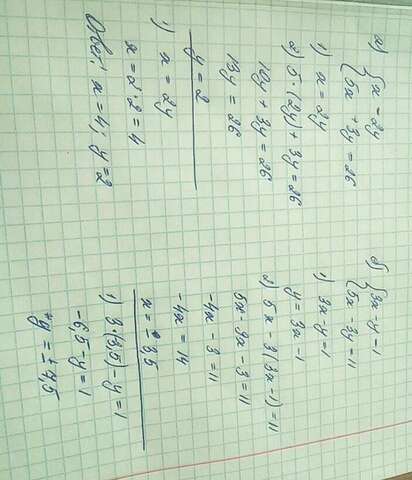 а) { x = 2y
5x + 3y = 26
1) x = 2y
2) 5 · (2y) + 3y = 26
10y + 3y = 26
13y = 26
y = 2
1) x = 2y
x = 2 · 2 = 4
Ответ: x = 4; y = 2
б) { 3x - y = 1
5x - 3y = 11
1) 3x - y = 1
y = 3x - 1
2) 5x - 3(3x - 1) = 11
5x - 9x - 3 = 11
-4x - 3 = 11
-4x = 14
1) 3 · (3,5) - y = 1
-6,5 - y = 1